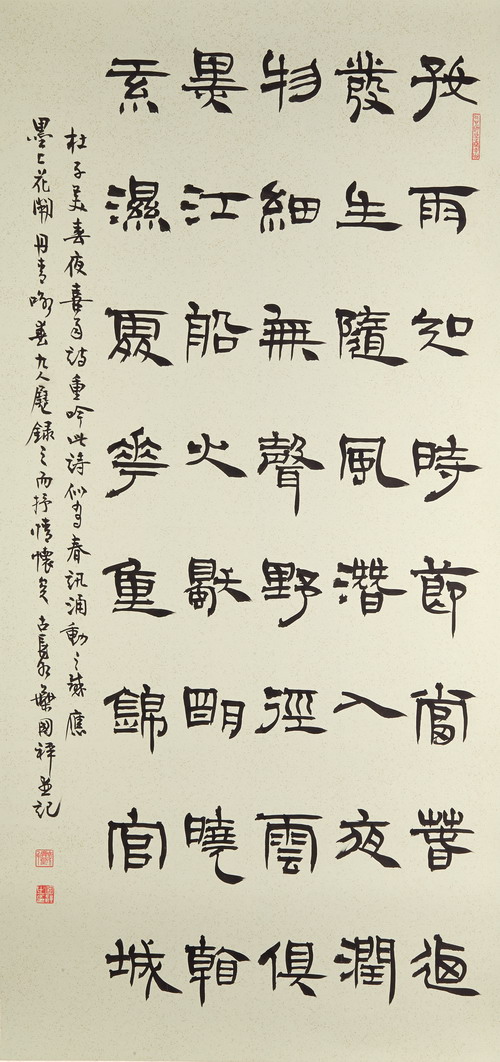 好雨知時節當春迺
發生隨風潛入夜潤
物細無聲野徑雲俱
黑江船火獨明曉看
紅濕處華重錦官城
杜子美春夜喜雨詩重吟此詩似有春訊涌動之感應
墨上花開丹青咏春九人展錄之而抒情懷矣古長安國祥並記